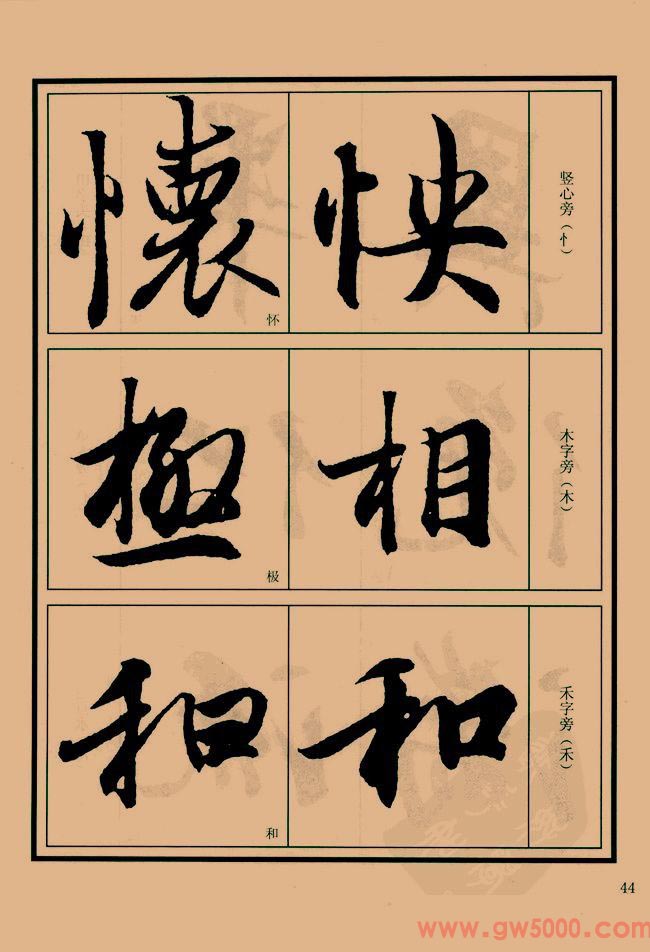 竖心旁（忄）
怏
懷
怀
木字旁（木）
相
極
极
禾字旁（禾）
和
和
和
44
www.gw5000.com